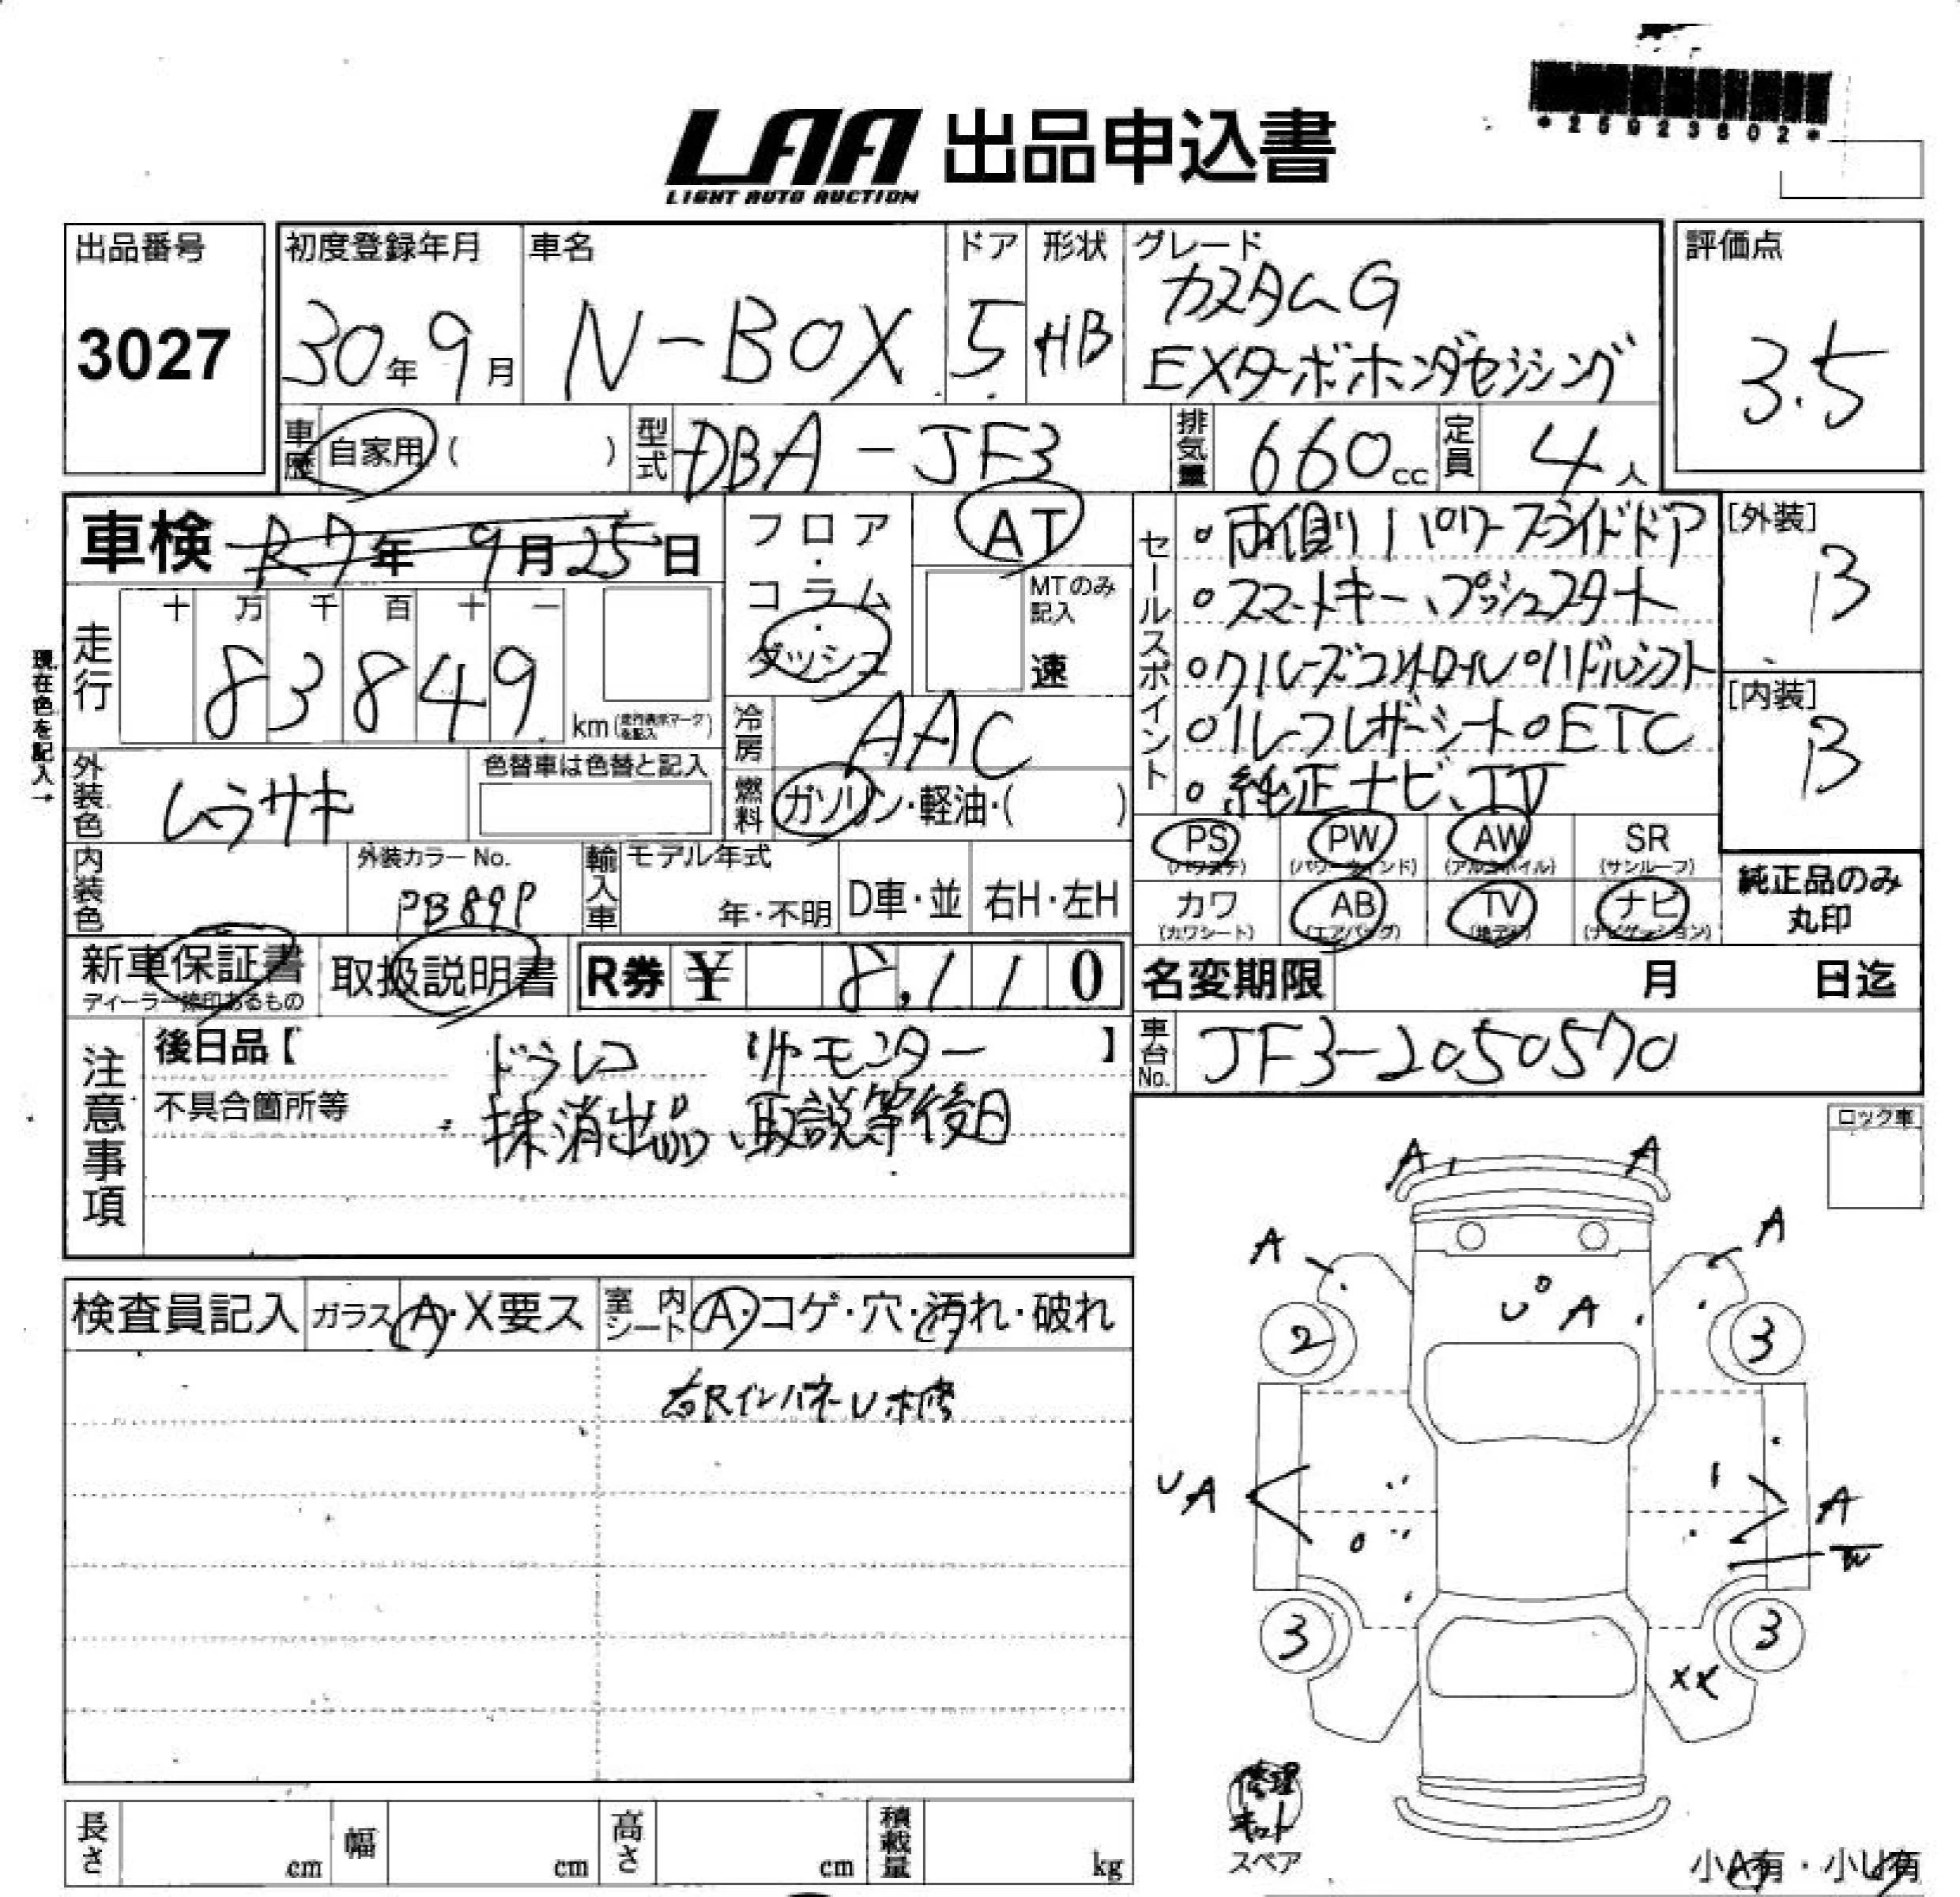 *25923602*
LAA 出品申込書
LIGHT AUTO AUCTION
出品番号
3027
初度登録年月
30年9月
車名
N-BOX
ドア
5
形状
HB
グレード
カスタムG
EXターボホンダセンシング
評価点
3.5
車歴
自家用( )
型式
DBA-JF3
排気量
660cc
定員
4人
車検 R7年9月25日
フロア・コラム・ダッシュ
AT
MTのみ記入
速
セールスポイント
・両側パワースライドドア
・スマートキー、プッシュスタート
・クルーズコントロール・パドルシフト
・ハーフレザーシート・ETC
・純正ナビ、TV
[外装]
B
[内装]
B
現在色を記入→
走行
十万千百十一
83849
km(走行表示マークを記入)
冷房
AAC
外装色
ムラサキ
色替車は色替と記入
燃料
ガソリン・軽油・( )
PS (パワステ)
PW (パワーウィンド)
AW (アルミホイル)
SR (サンルーフ)
カワ (カワシート)
AB (エアバッグ)
TV (地デジ)
ナビ (ナビゲーション)
純正品のみ丸印
内装色
外装カラーNo.
PB89P
輸入車
モデル年式
年・不明
D車・並
右H・左H
新車保証書
ディーラー捺印あるもの
取扱説明書
R券 ¥ 8,110
名変期限 月 日迄
注意事項
後日品【 】
ドラレコ リヤモニター
不具合箇所等
抹消出品、取説等後日
車台No.
JF3-2050570
ロック車
検査員記入
ガラス A・X要ス
室内シート A・コゲ・穴・汚れ・破れ
右Rインパネル補修
A A
A A
U A
2 3
UA A
W
3 3
XX
修理キット
スペア
小A有・小U有
長さ cm
幅 cm
高さ cm
積載量 kg